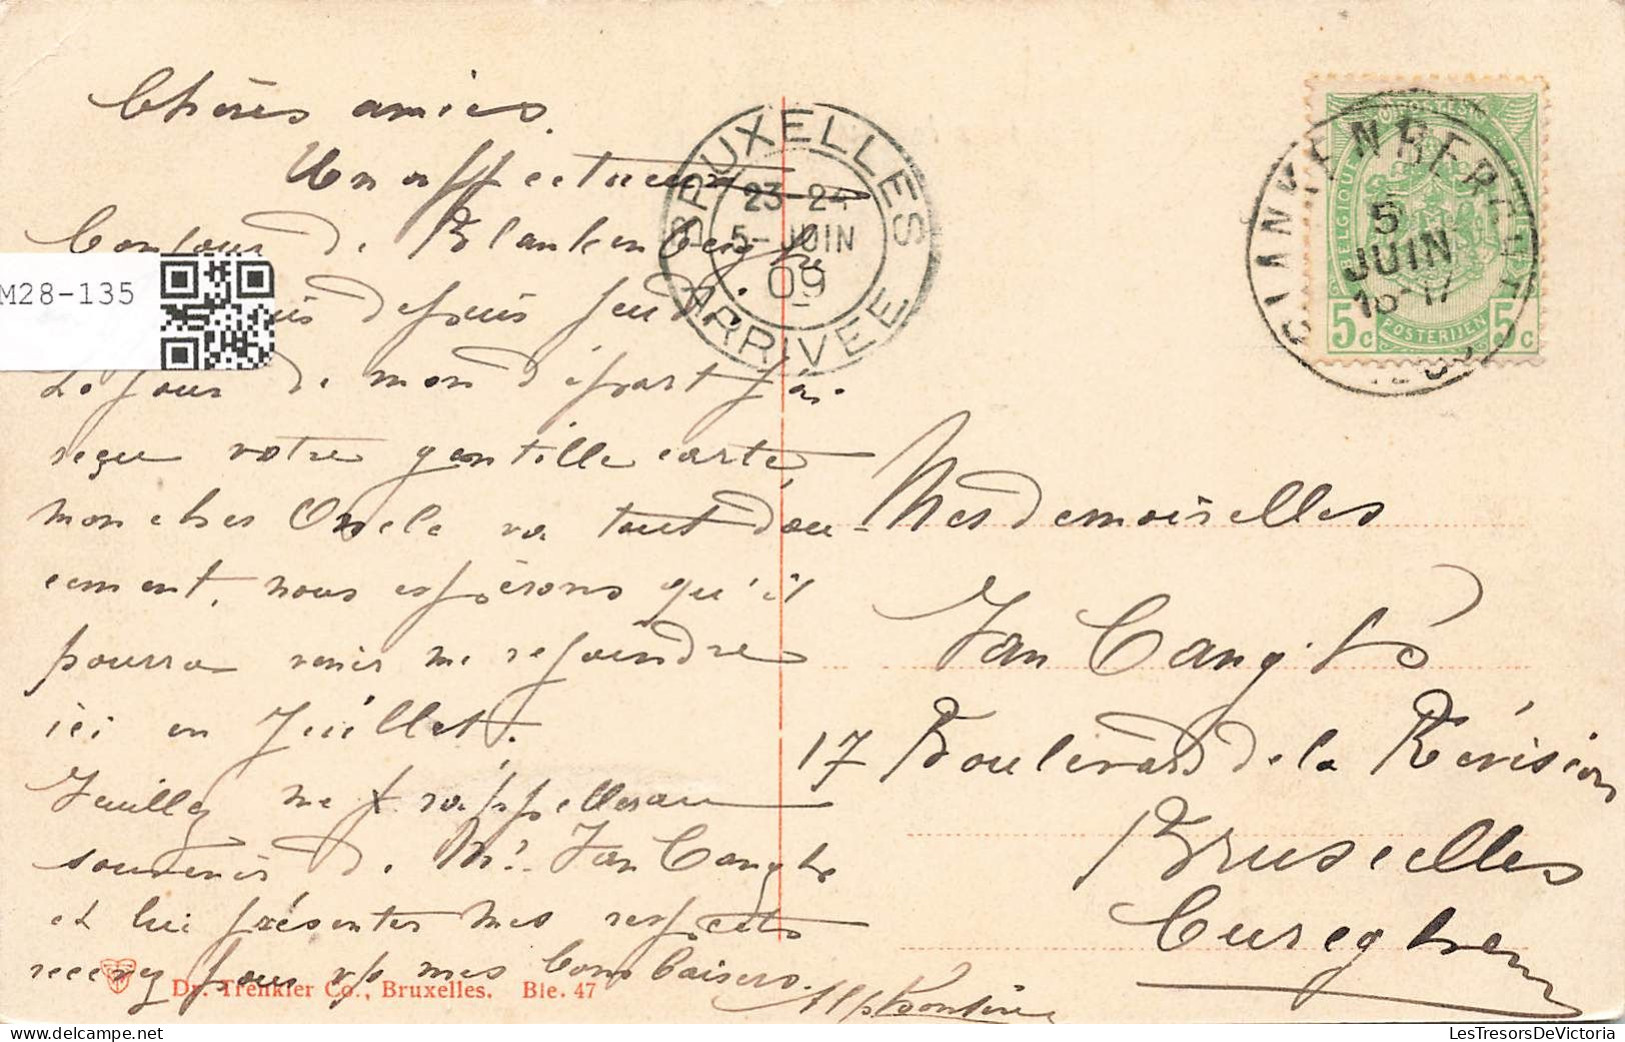 Chères amies.
Un affectueux
bonjour de Blankenberghe
depuis jeudi.
Le jour de mon départ j'ai
reçu votre gentille carte,
mon cher Oncle va tout dou-
cement, nous espérons qu'il
pourra venir me rejoindre
ici en Juillet.
Veuillez me rappeller au
souvenir de Mr. Van Canghe
et lui présenter mes respects
recevez pour vs mes bons baisers.
BRUXELLES
23-24
5-JUIN
09
ARRIVEE
BLANKENBERGHE
5
JUIN
16-17
POSTES
BELGIQUE
5c 5c
POSTERIJEN
Mesdemoiselles
Van Cangh
17 Boulevard de la Révision
Bruxelles
Cureghem
Dr. Trenkler Co., Bruxelles. Ble. 47
M28-135
LesTresorsDeVictoria